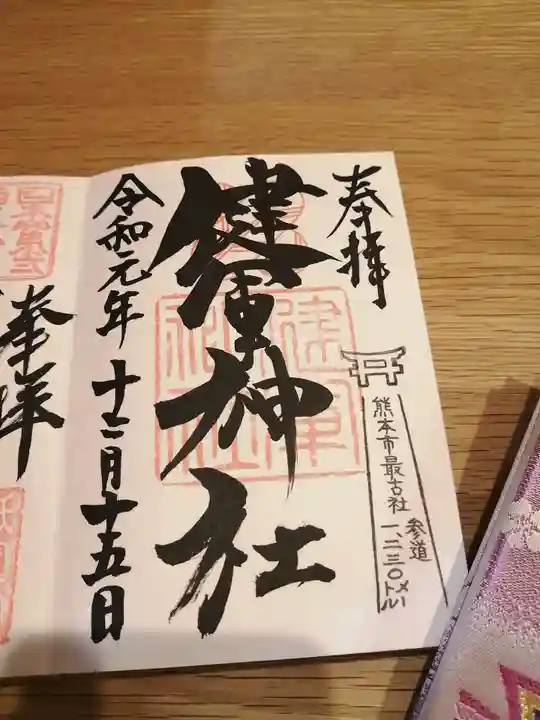 奉拝
熊本市最古社
参道
一、二三〇メートル
健軍神社
健軍
神社
令和元年十二月十五日
奉拝